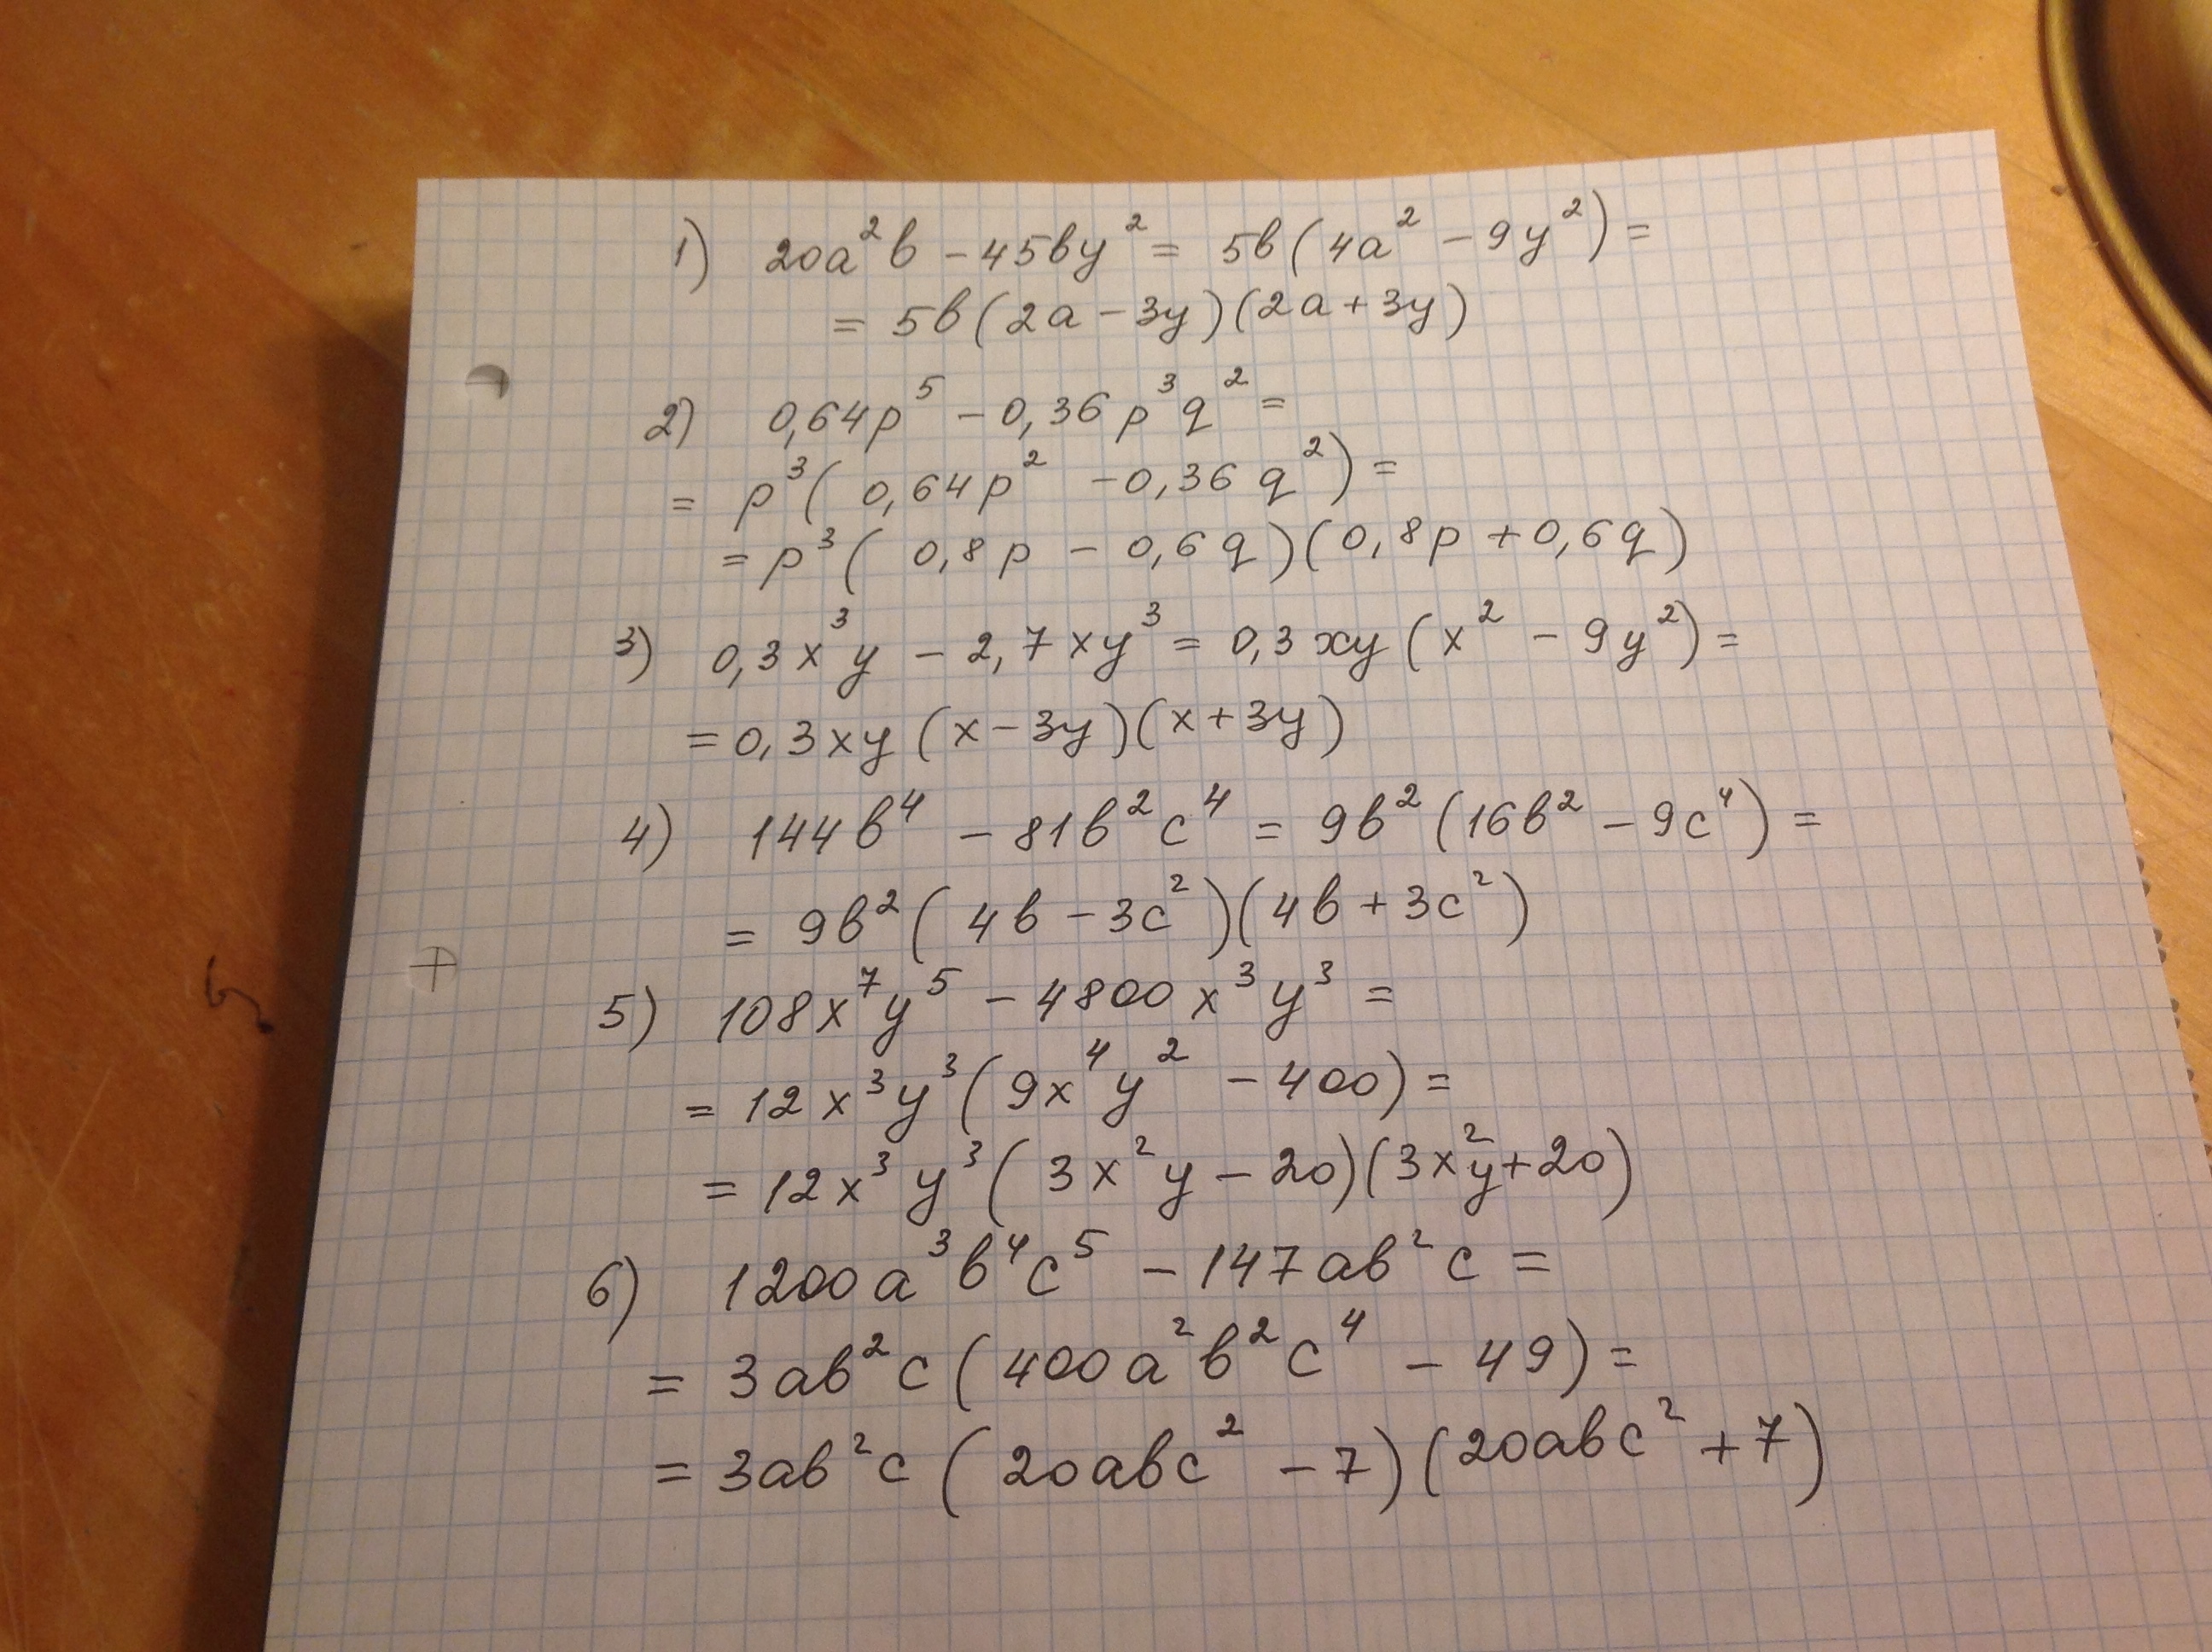 1) 20a²b - 45by² = 5b(4a² - 9y²) =
= 5b(2a - 3y)(2a + 3y)
2) 0,64p⁵ - 0,36p³q² =
= p³(0,64p² - 0,36q²) =
= p³(0,8p - 0,6q)(0,8p + 0,6q)
3) 0,3x³y - 2,7xy³ = 0,3xy(x² - 9y²) =
= 0,3xy(x - 3y)(x + 3y)
4) 144b⁴ - 81b²c⁴ = 9b²(16b² - 9c⁴) =
= 9b²(4b - 3c²)(4b + 3c²)
5) 108x⁷y⁵ - 4800x³y³ =
= 12x³y³(9x⁴y² - 400) =
= 12x³y³(3x²y - 20)(3x²y + 20)
6) 1200a³b⁴c⁵ - 147ab²c =
= 3ab²c(400a²b²c⁴ - 49) =
= 3ab²c(20abc² - 7)(20abc² + 7)